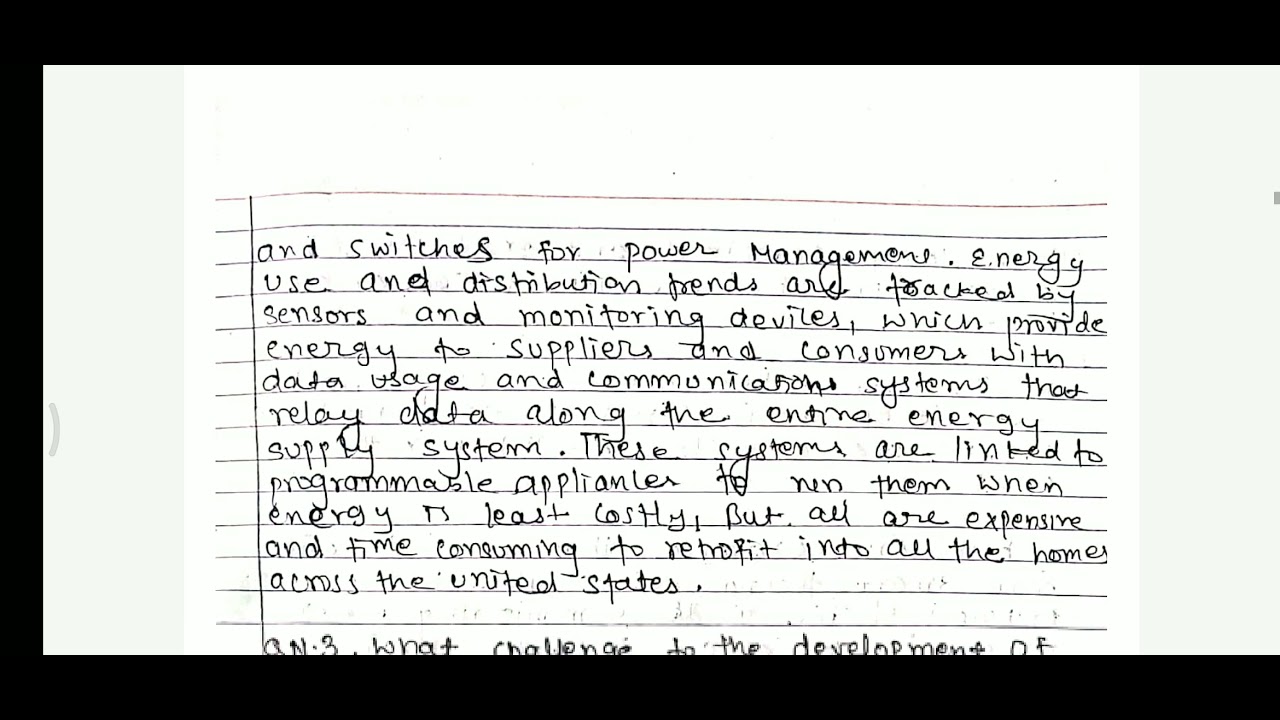 and switches for power Management. Energy
use and distribution trends are tracked by
sensors and monitoring deviles, which provide
energy to suppliers and consumers with
data usage and communications systems that
relay data along the entire energy
supply system. These systems are linked to
programmable applianles to run them when
energy is least costly, But all are expensive
and time consuming to retrofit into all the homes
across the united states.
QN.3. What challenge to the development of